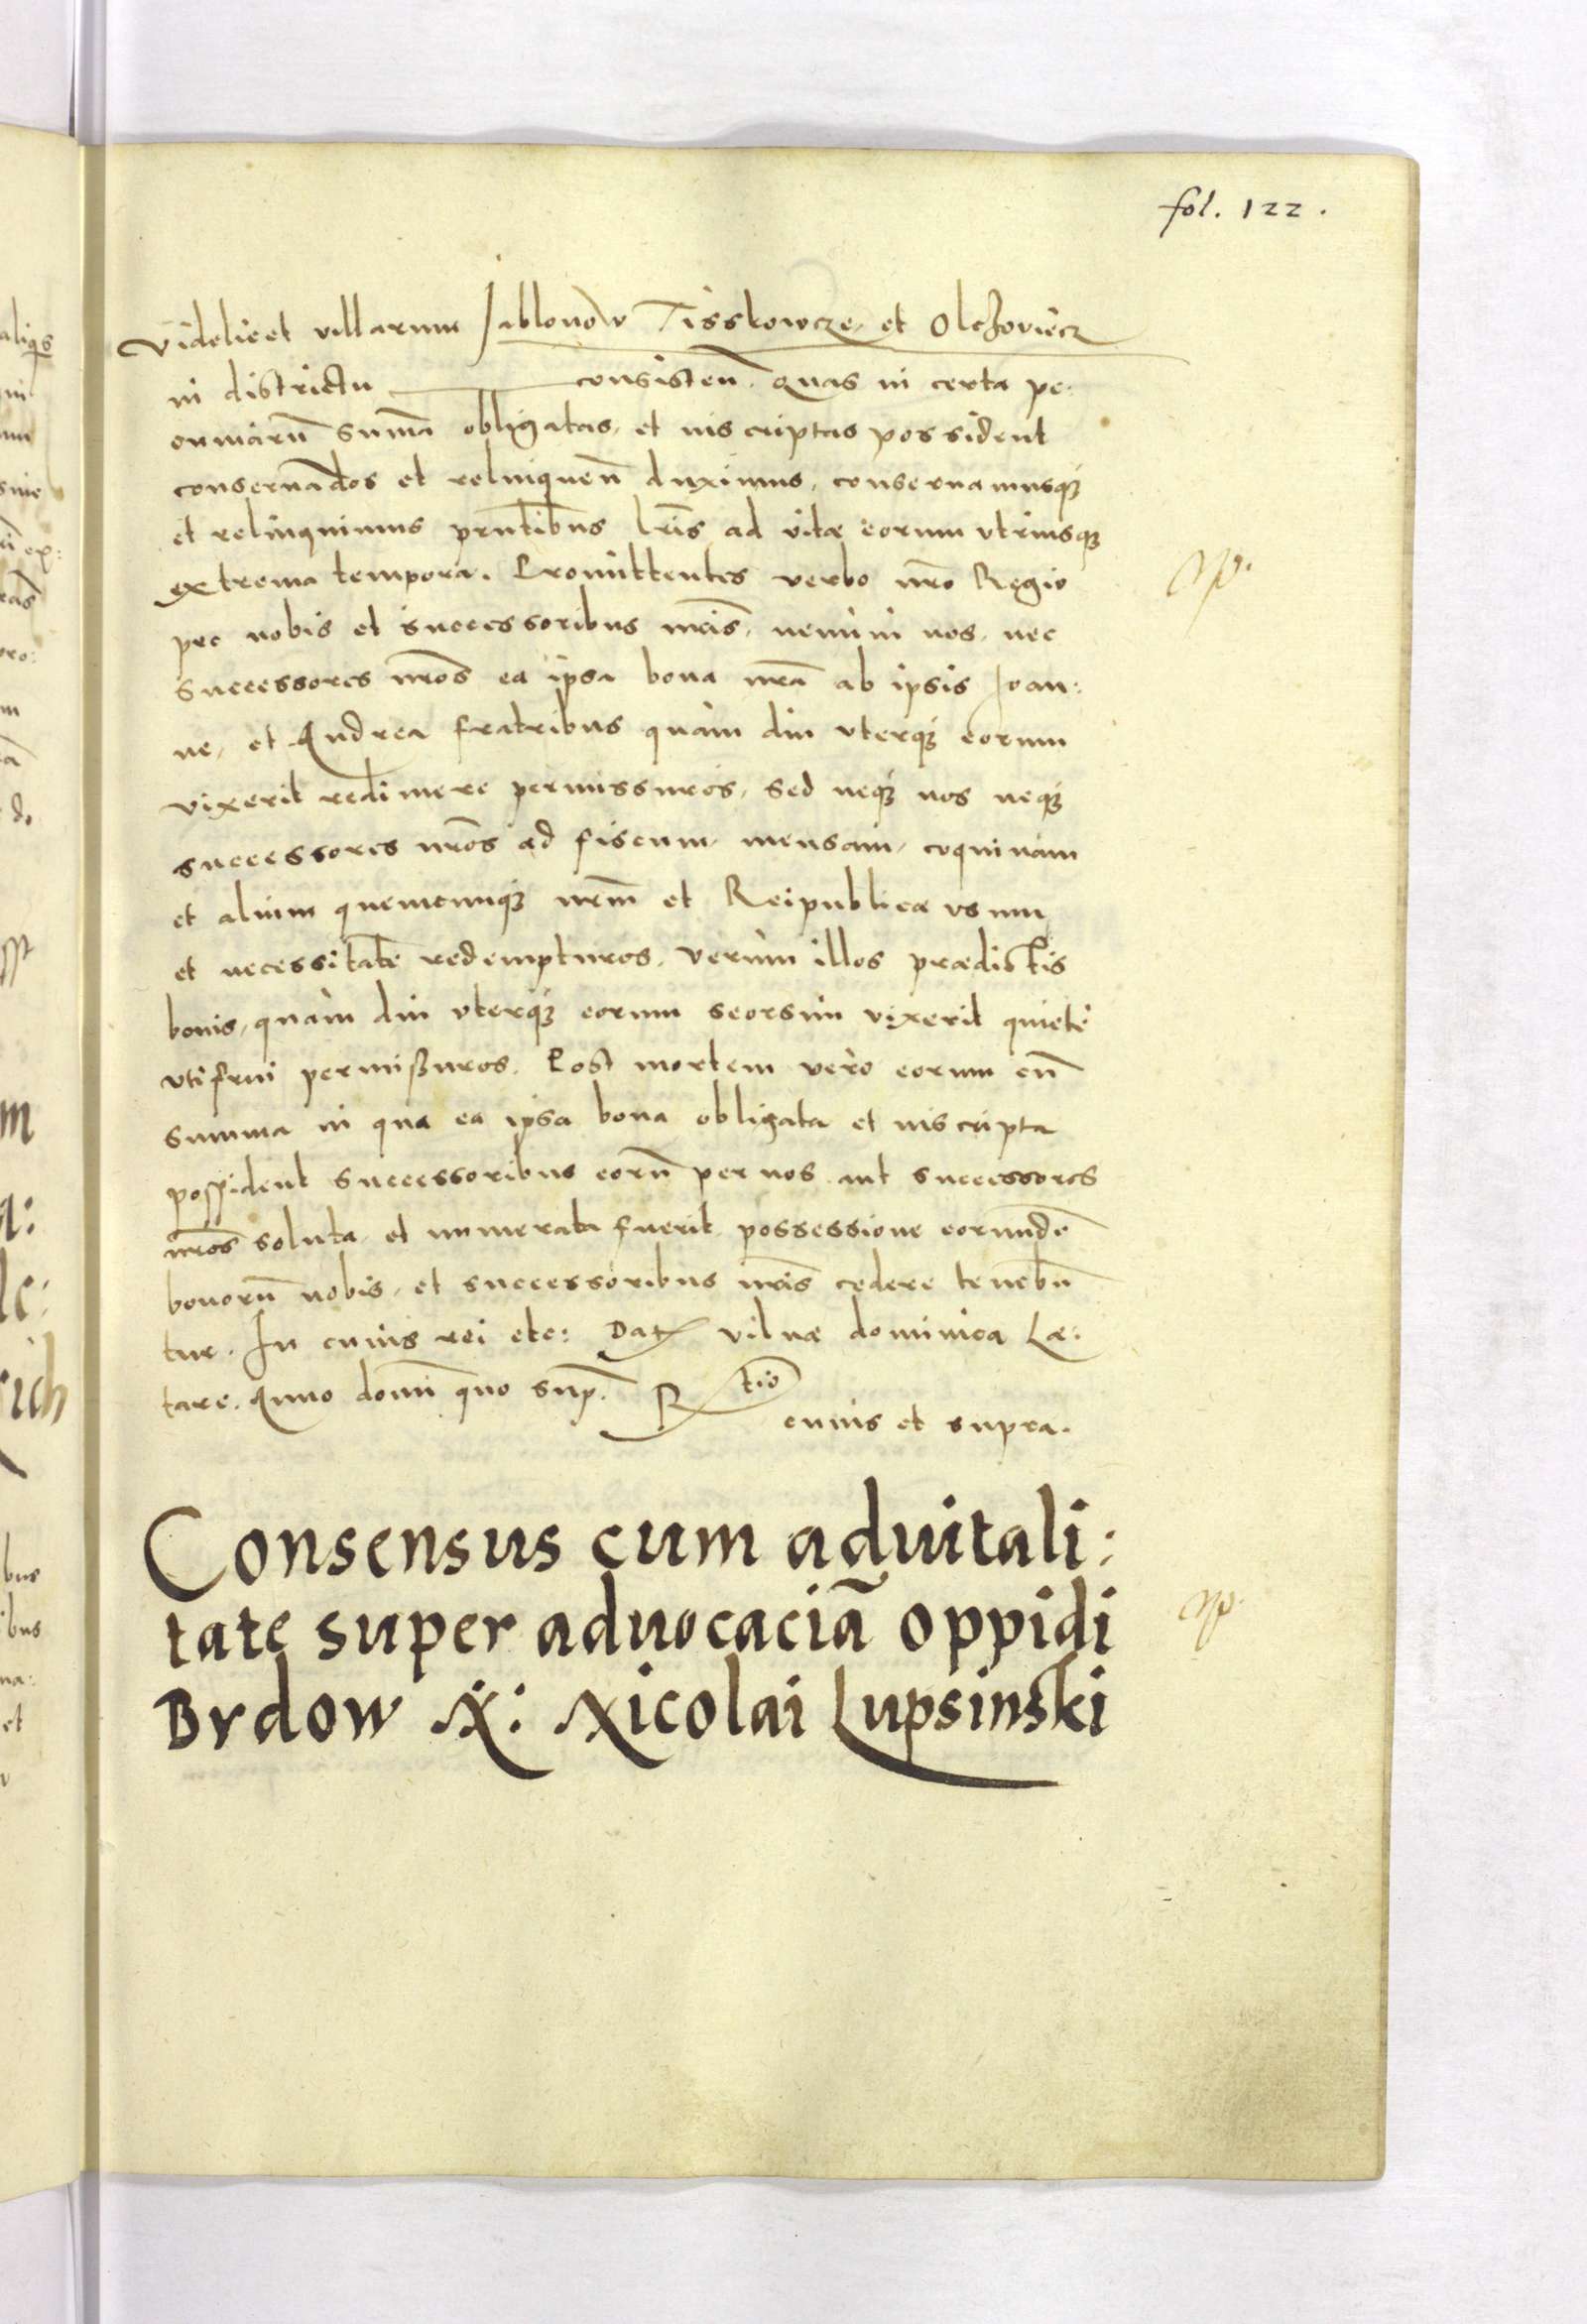 fol. 122.
Videlicet villarum Jablonow Tisskowcze, et Olchoviecz
in districtu consisteñ. Quas in certa pe:
cuniarũ sum̃a obligatas, et inscriptas possident
conseruãdos et relinquen̄ duximus, conseruamusq3
et relinquimus prñtibus lr̃is ad vitæ eorum vtriusq3
extrema tempora. Promittentes verbo nr̃o Regio
pro nobis et successoribus nr̃is, nemini nos, nec
successores nr̃os ea ipsa bona nr̃a ab ipsis Joan:
ne, et Andrea fratribus quàm diu vterq3 eorum
vixerit redimere permissuros, sed neq3 nos neq3
successores nr̃os ad fiscum, mensam, coquinam
et alium quemcunq3 nr̃m et Reipublicæ vsum
et necessitatẽ redempturos, verùm illos prædictis
bonis, quàm diu vterq3 eorum seorsim vixerit quietè
vti frui permißuros. Post mortem verò eorum cũ
summa in qua ea ipsa bona obligata et inscripta
possident successoribus eorũ per nos aut successores
nr̃os soluta, et numerata fuerit possessione eorundẽ
bonorũ nobis, et successoribus nr̃is cedere tenebũ
tur. In cuius rei etc: Dat vilnæ dominica Læ:
tare. Anno domī quo sup. R tio
cuius et supra.
Consensus cum aduitali:
tate super aduocaciã oppidi
Brdow N: Nicolai Lupsinski